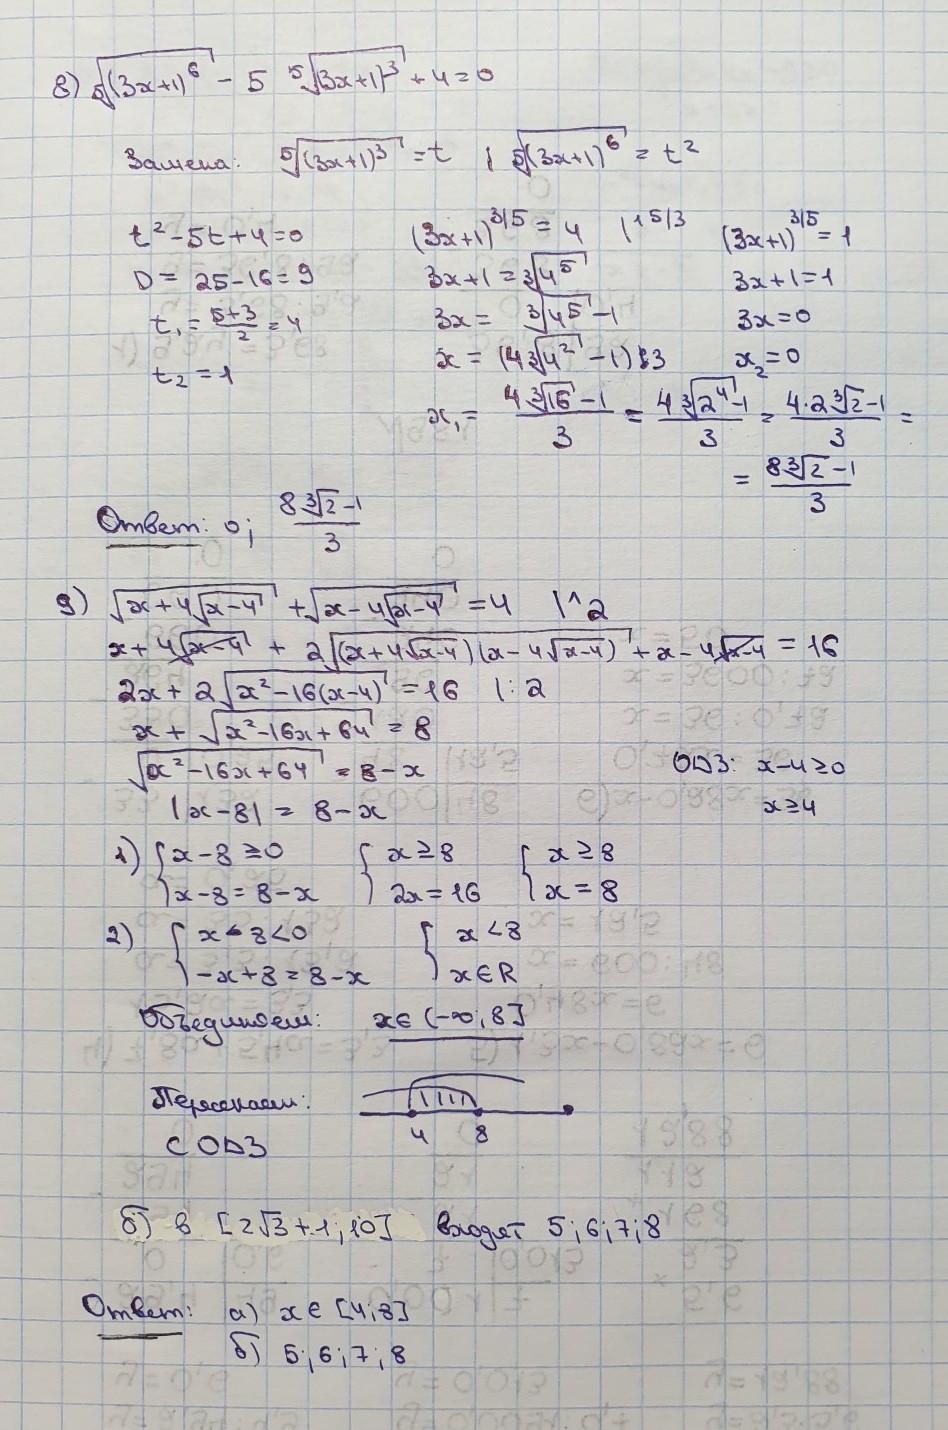 8) ⁵√(3x+1)⁶ - 5 ⁵√(3x+1)³ + 4 = 0
Замена: ⁵√(3x+1)³ = t ; ⁵√(3x+1)⁶ = t²
t² - 5t + 4 = 0
D = 25 - 16 = 9
t₁ = (5+3)/2 = 4
t₂ = 1
(3x+1)^(3/5) = 4 |^ 5/3
3x+1 = ³√4⁵
3x = ³√4⁵ - 1
x = (4³√4² - 1) : 3
(3x+1)^(3/5) = 1
3x+1 = 1
3x = 0
x₂ = 0
x₁ = (4³√16 - 1)/3 = (4³√2⁴ - 1)/3 = (4·2³√2 - 1)/3 =
= (8³√2 - 1)/3
Ответ: 0; (8³√2 - 1)/3
9) √(x+4√(x-4)) + √(x-4√(x-4)) = 4 |^2
x + 4√(x-4) + 2√((x+4√(x-4))(x-4√(x-4))) + x - 4√(x-4) = 16
2x + 2√(x²-16(x-4)) = 16 | : 2
x + √(x²-16x+64) = 8
√(x²-16x+64) = 8 - x ОДЗ: x-4≥0
|x-8| = 8-x x≥4
1) { x-8≥0 { x≥8 { x≥8
x-8 = 8-x 2x = 16 x = 8
2) { x-8<0 { x<8
-x+8 = 8-x x∈R
Объединяем: x∈(-∞; 8]
Пересекаем:
с ОДЗ 4 8
б) в [2√3+1; 10] входят 5; 6; 7; 8
Ответ: а) x∈[4; 8]
б) 5; 6; 7; 8